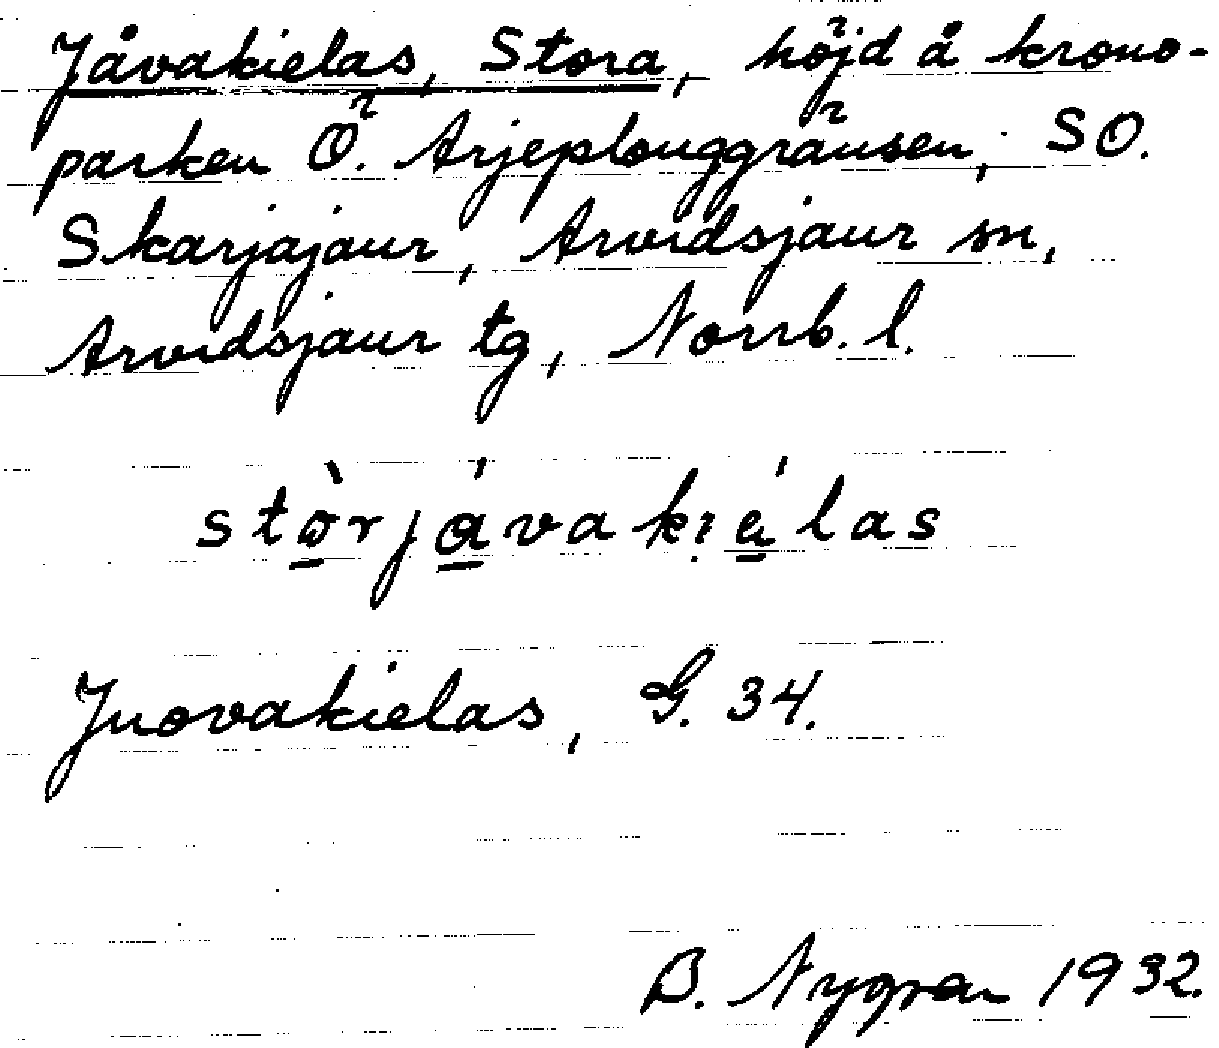 Jåvakielas, Stora, höjd å krono-
parken Ö. Arjeplouggränsen, SO.
Skarjajaur, Arvidsjaur sn,
Arvidsjaur tg, Norrb. l.
stòrjávakiélas
Juovakielas, G. 34.
B. Nygren 1932.